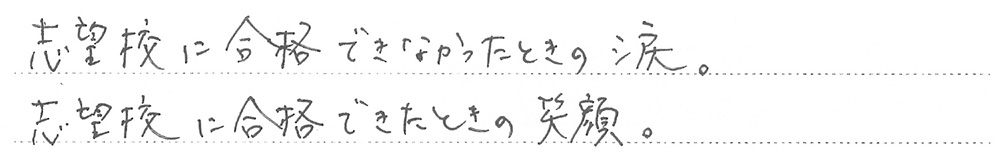 志望校に合格できなかったときの涙。
志望校に合格できたときの笑顔。